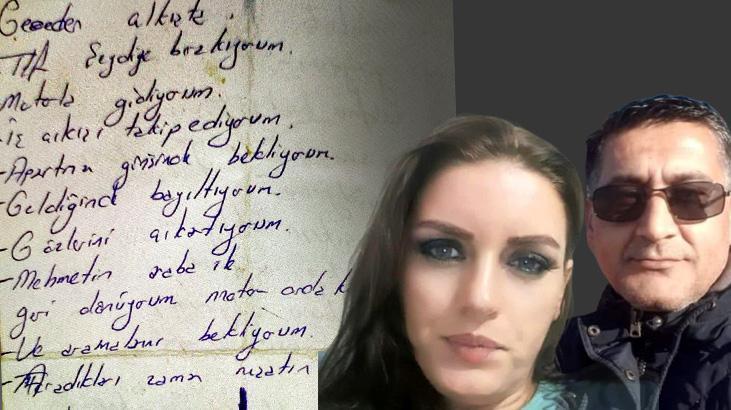 Geceden alkışta.
-TIR Seydiye bırakıyorum.
Motorla gidiyorum.
-İş çıkışı takip ediyorum.
-Apartman girişinde bekliyorum.
-Geldiğinde bayıltıyorum.
-Gözlerini çıkartıyorum.
-Mehmetin araba ile
geri dönüyorum motor orda k
-Ve aramalarını bekliyorum.
-Aradıkları zaman